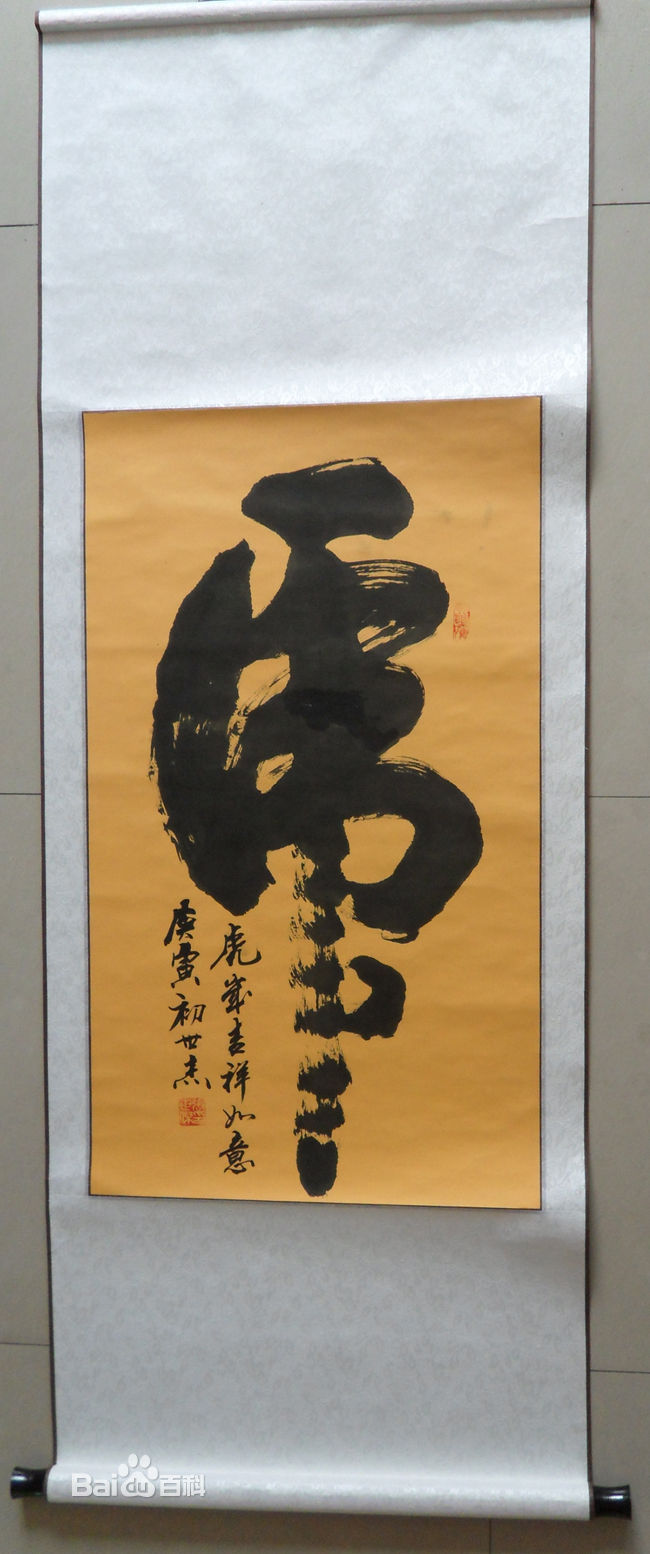 虎
虎岁吉祥如意
庚寅初世杰
Baidu百科